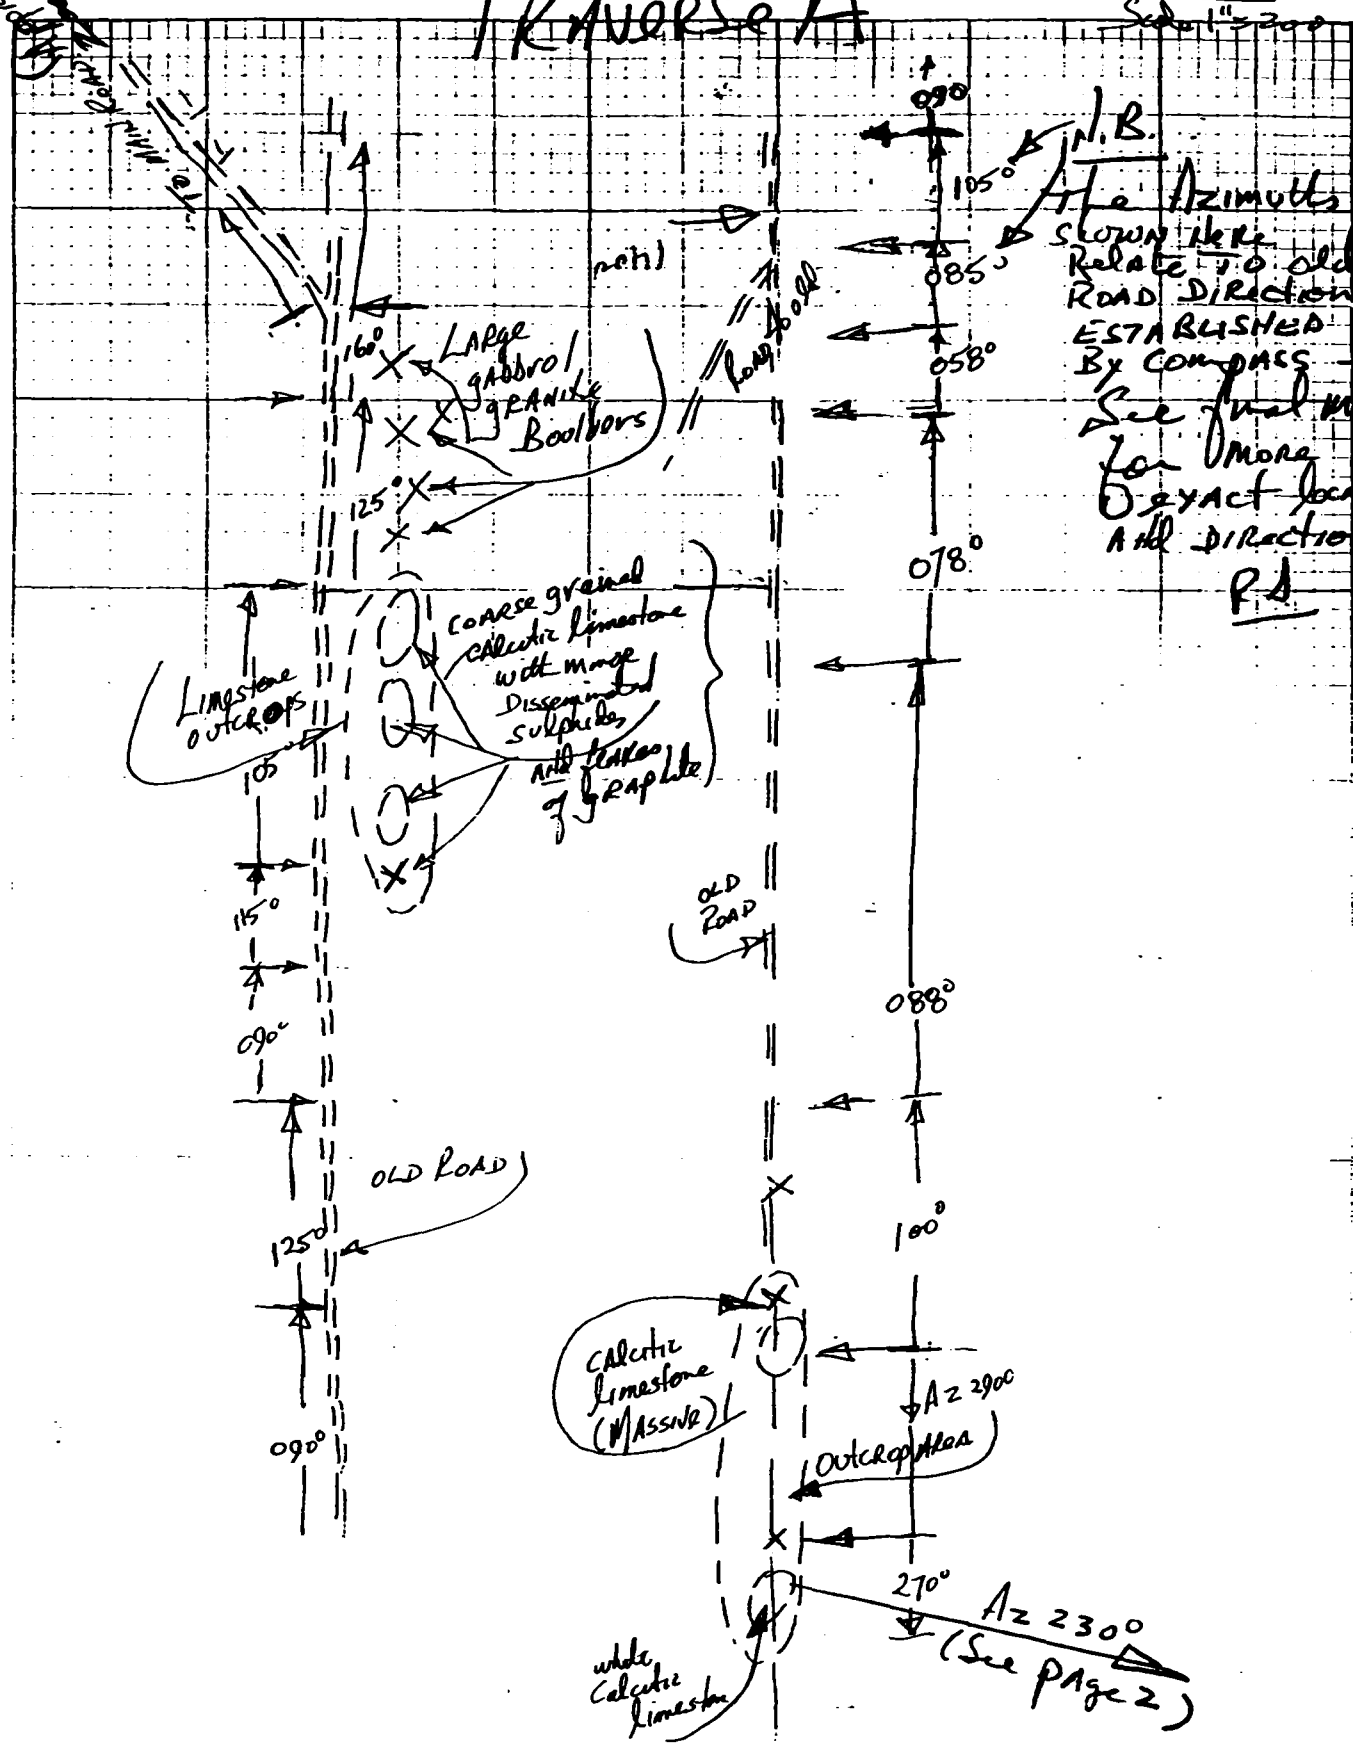 TRAVERSE A
Scale 1" = 200
To MAIN ROAD
090
105°
085°
058°
078°
088°
100°
Az 290°
270°
Az 230°
(See PAge 2)
N.B.
The Azimuths
SHOWN HeRe
RelAte To old
ROAD DiRection
ESTABLISHED
By COMPASS -
See final M
for more
exAct loca
AND DIRectio
RoAD to old
160°
LARge
gAbbro/
gRANite
BoulDers
125°
COARSE grained
CAlcitic limestone
with
Disseminated
sulphides
AND flakes
of gRAphite
Limestone
outcRops
105
115°
090°
OLD ROAD
125°
090°
OLD
ROAD
CAlcitic
limestone
(MAssive)
OutcRop AReA
white
CAlcitic
limestone